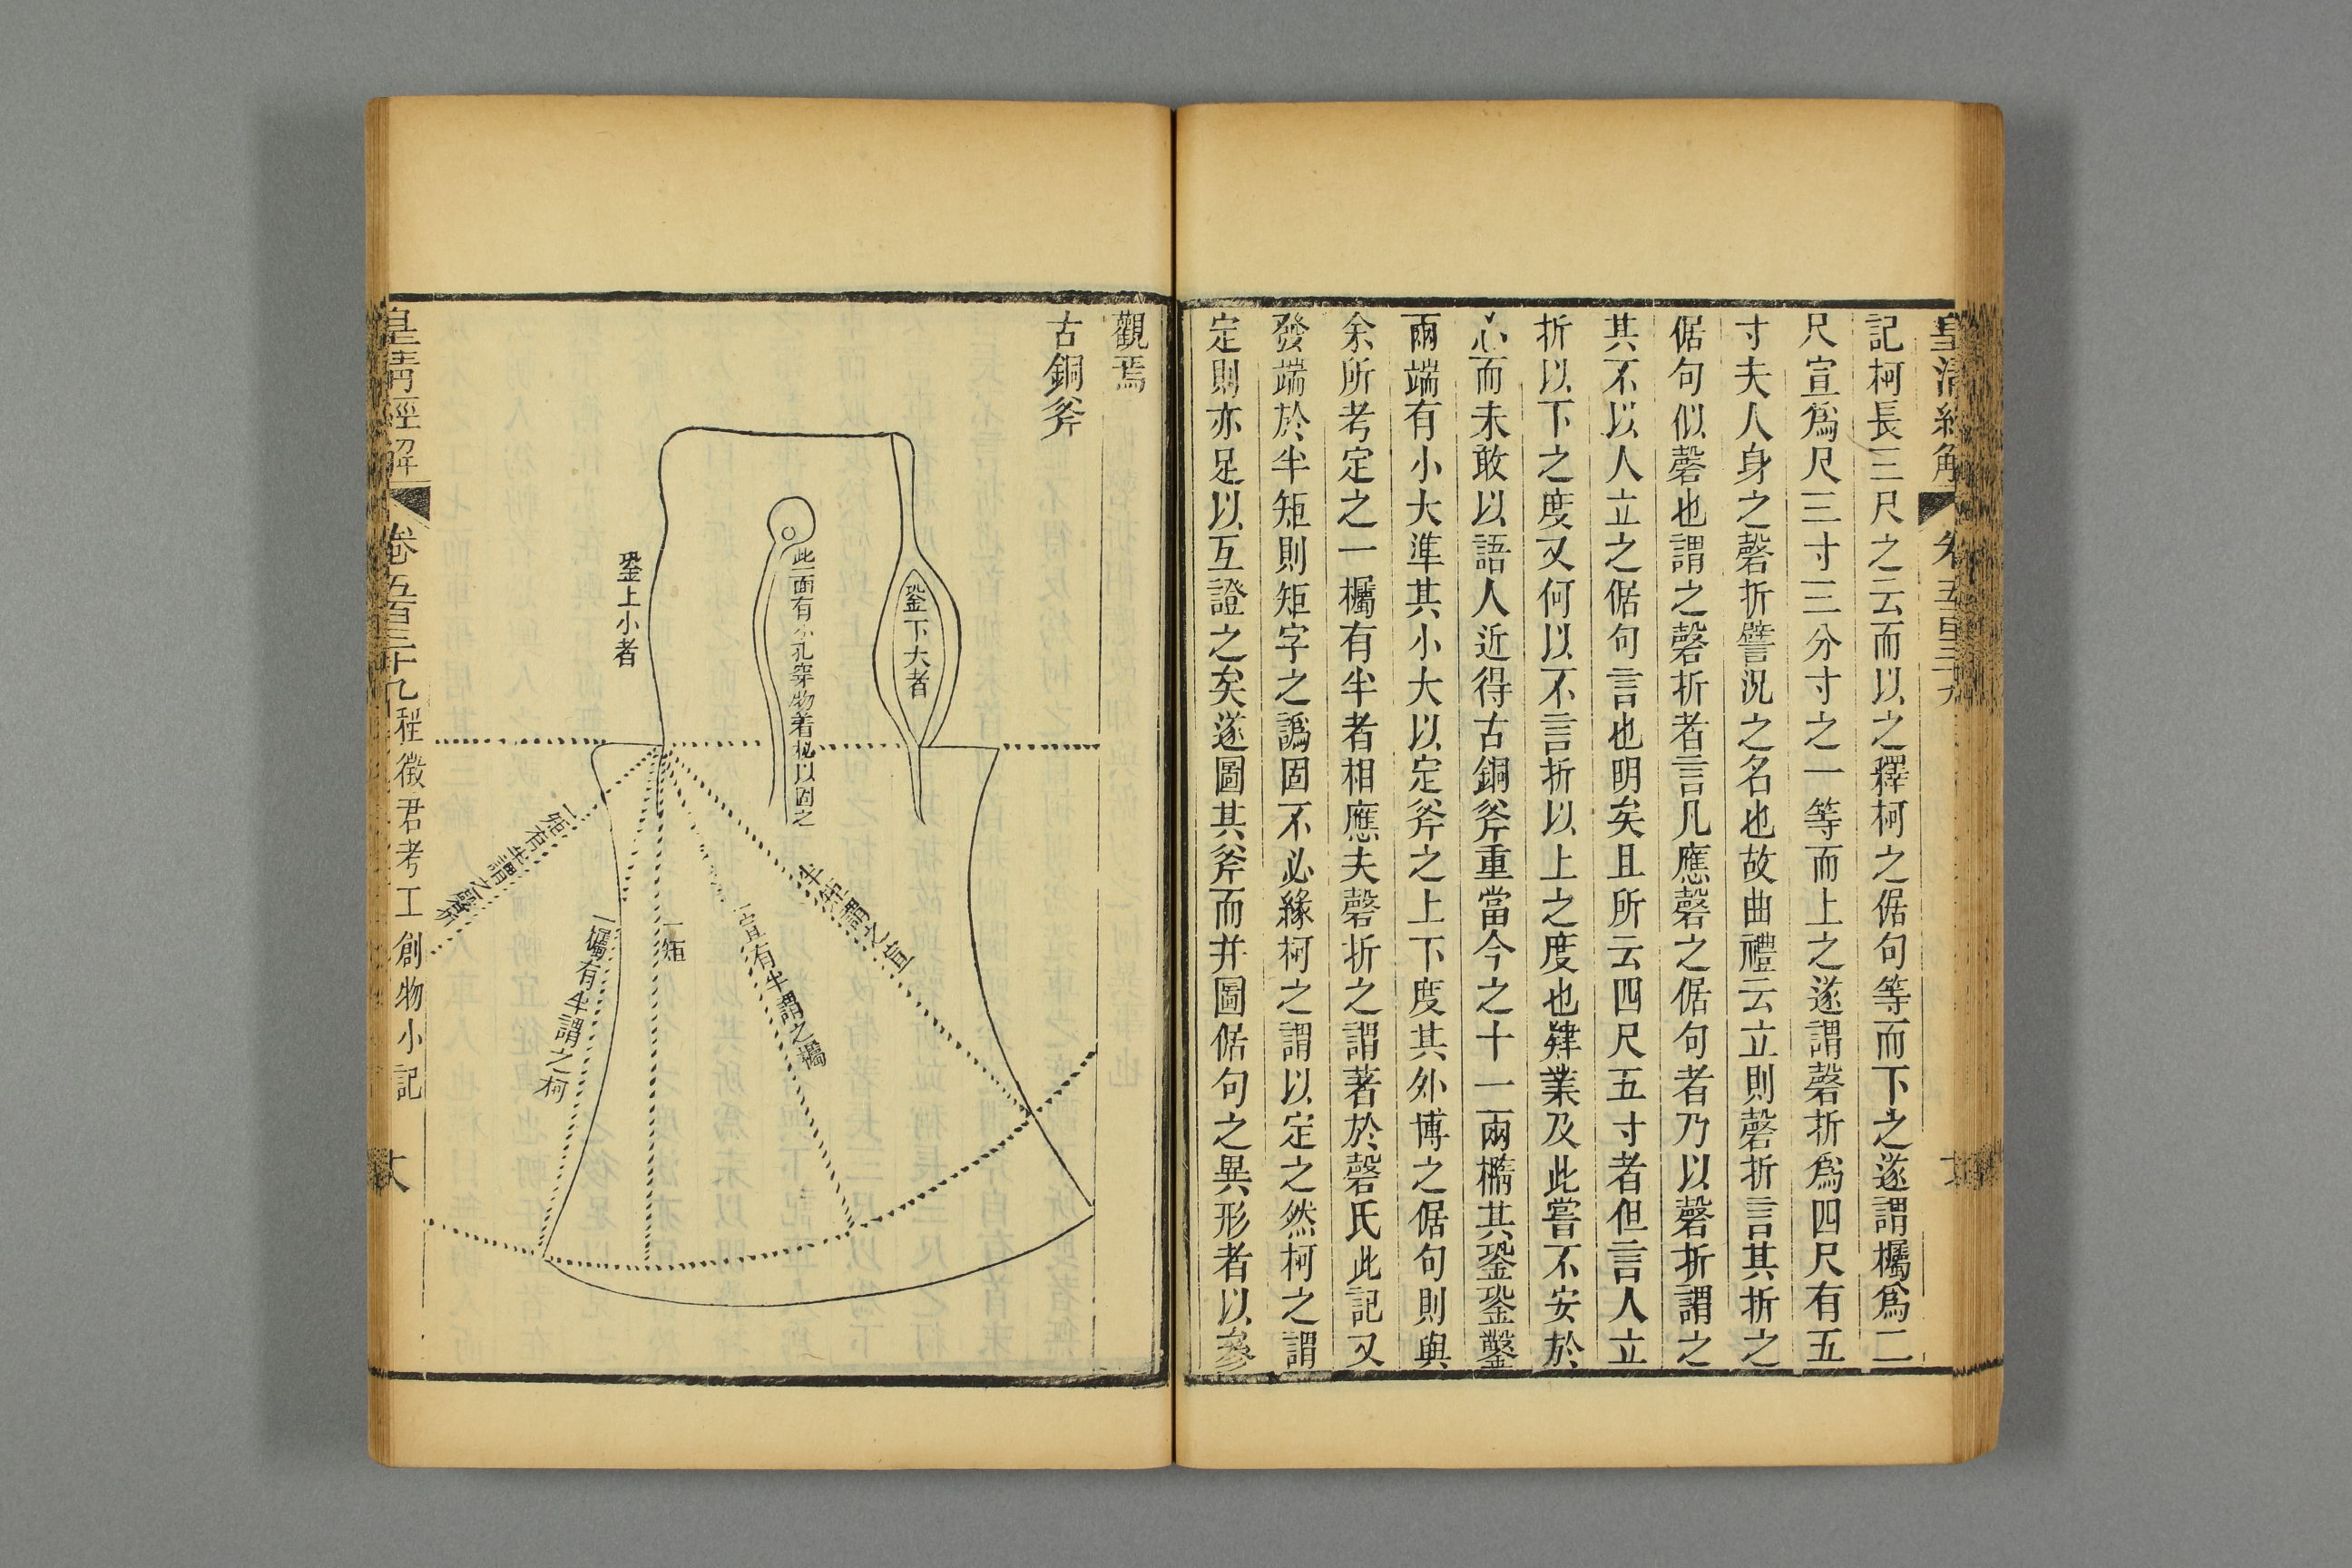 記柯長三尺之云而以之釋柯之倨句等而下之遂謂欘爲二
尺宣爲尺三寸三分寸之一等而上之遂謂磬折爲四尺有五
寸夫人身之磬折譬況之名也故曲禮云立則磬折言其折之
倨句似磬也謂之磬折者言凡應磬之倨句者乃以磬折謂之
其不以人立之倨句言也明矣且所云四尺五寸者但言人立
折以下之度又何以不言折以上之度也肄業及此嘗不安於
心而未敢以語人近得古銅斧重當今之十一兩橢其銎銎鑿
兩端有小大準其小大以定斧之上下度其外博之倨句則與
余所考定之一欘有半者相應夫磬折之謂著於磬氏此記又
發端於半矩則矩字之譌固不必緣柯之謂以定之然柯之謂
定則亦足以互證之矣遂圖其斧而并圖倨句之異形者以參
觀焉
古銅斧
銎下大者
此一面有小孔穿物著柲以固之
銎上小者
半矩謂之宣
一宣有半謂之欘
一矩
一欘有半謂之柯
一矩有半謂之磬折
皇清經解
卷五百三十九程徵君考工創物小記